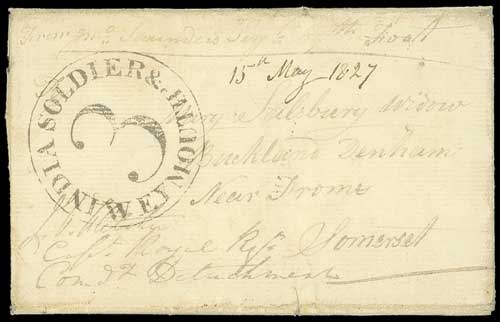 From Saunders Foot
15th May 1827
INDIA SOLDIER & WEYMOUTH
3
Mary Salsbury Widow
Buckland Denham
Near Frome
Somerset
Capt Royal Regt
Comdg Detachment